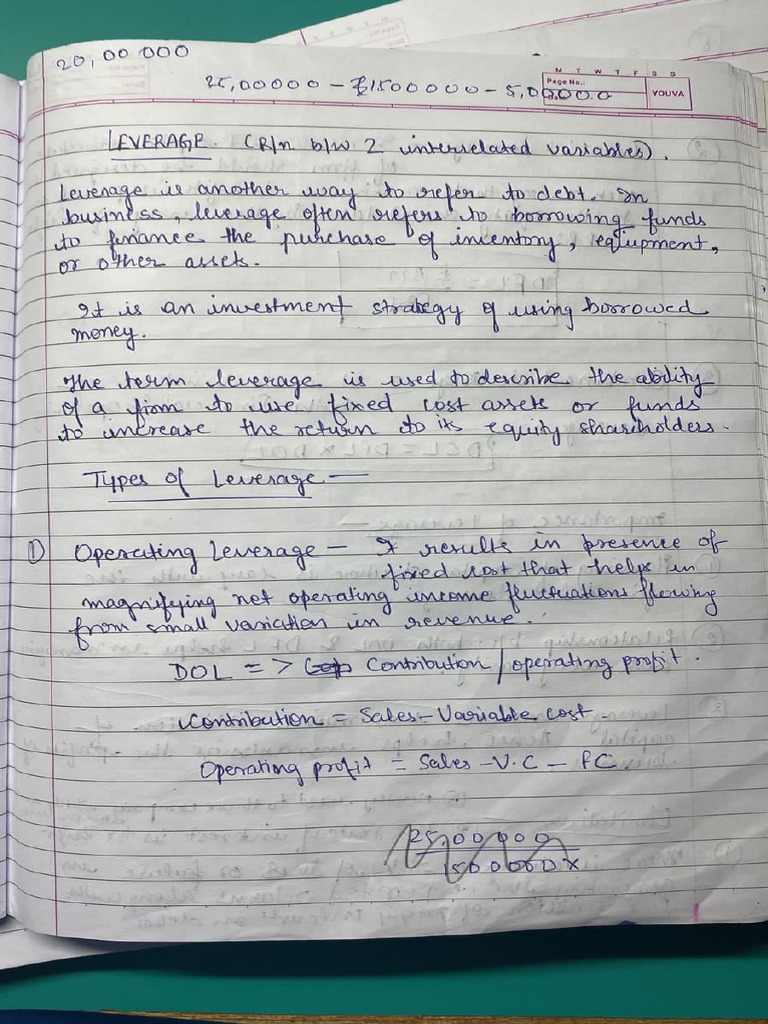 20,00 000
M T W T F S S
Page No.:
YOUVA
25,00000 - ₹1500000 - 5,00000
LEVERAGE. (R/n b/w 2 interrelated variables).
Leverage is another way to refer to debt. In
business, leverage often refers to borrowing funds
to finance the purchase of inventory, equipment,
or other assets.
It is an investment strategy of using borrowed
money.
The term leverage is used to describe the ability
of a firm to use fixed cost assets or funds
to increase the return to its equity shareholders.
Types of Leverage —
① Operating Leverage — It results in presence of
fixed cost that helps in
magnifying net operating income fluctuations flowing
from small variation in revenue.
DOL => Contribution / operating profit.
Contribution = Sales - Variable cost.
Operating profit = Sales - V.C - FC.
25,00000
1500000 x